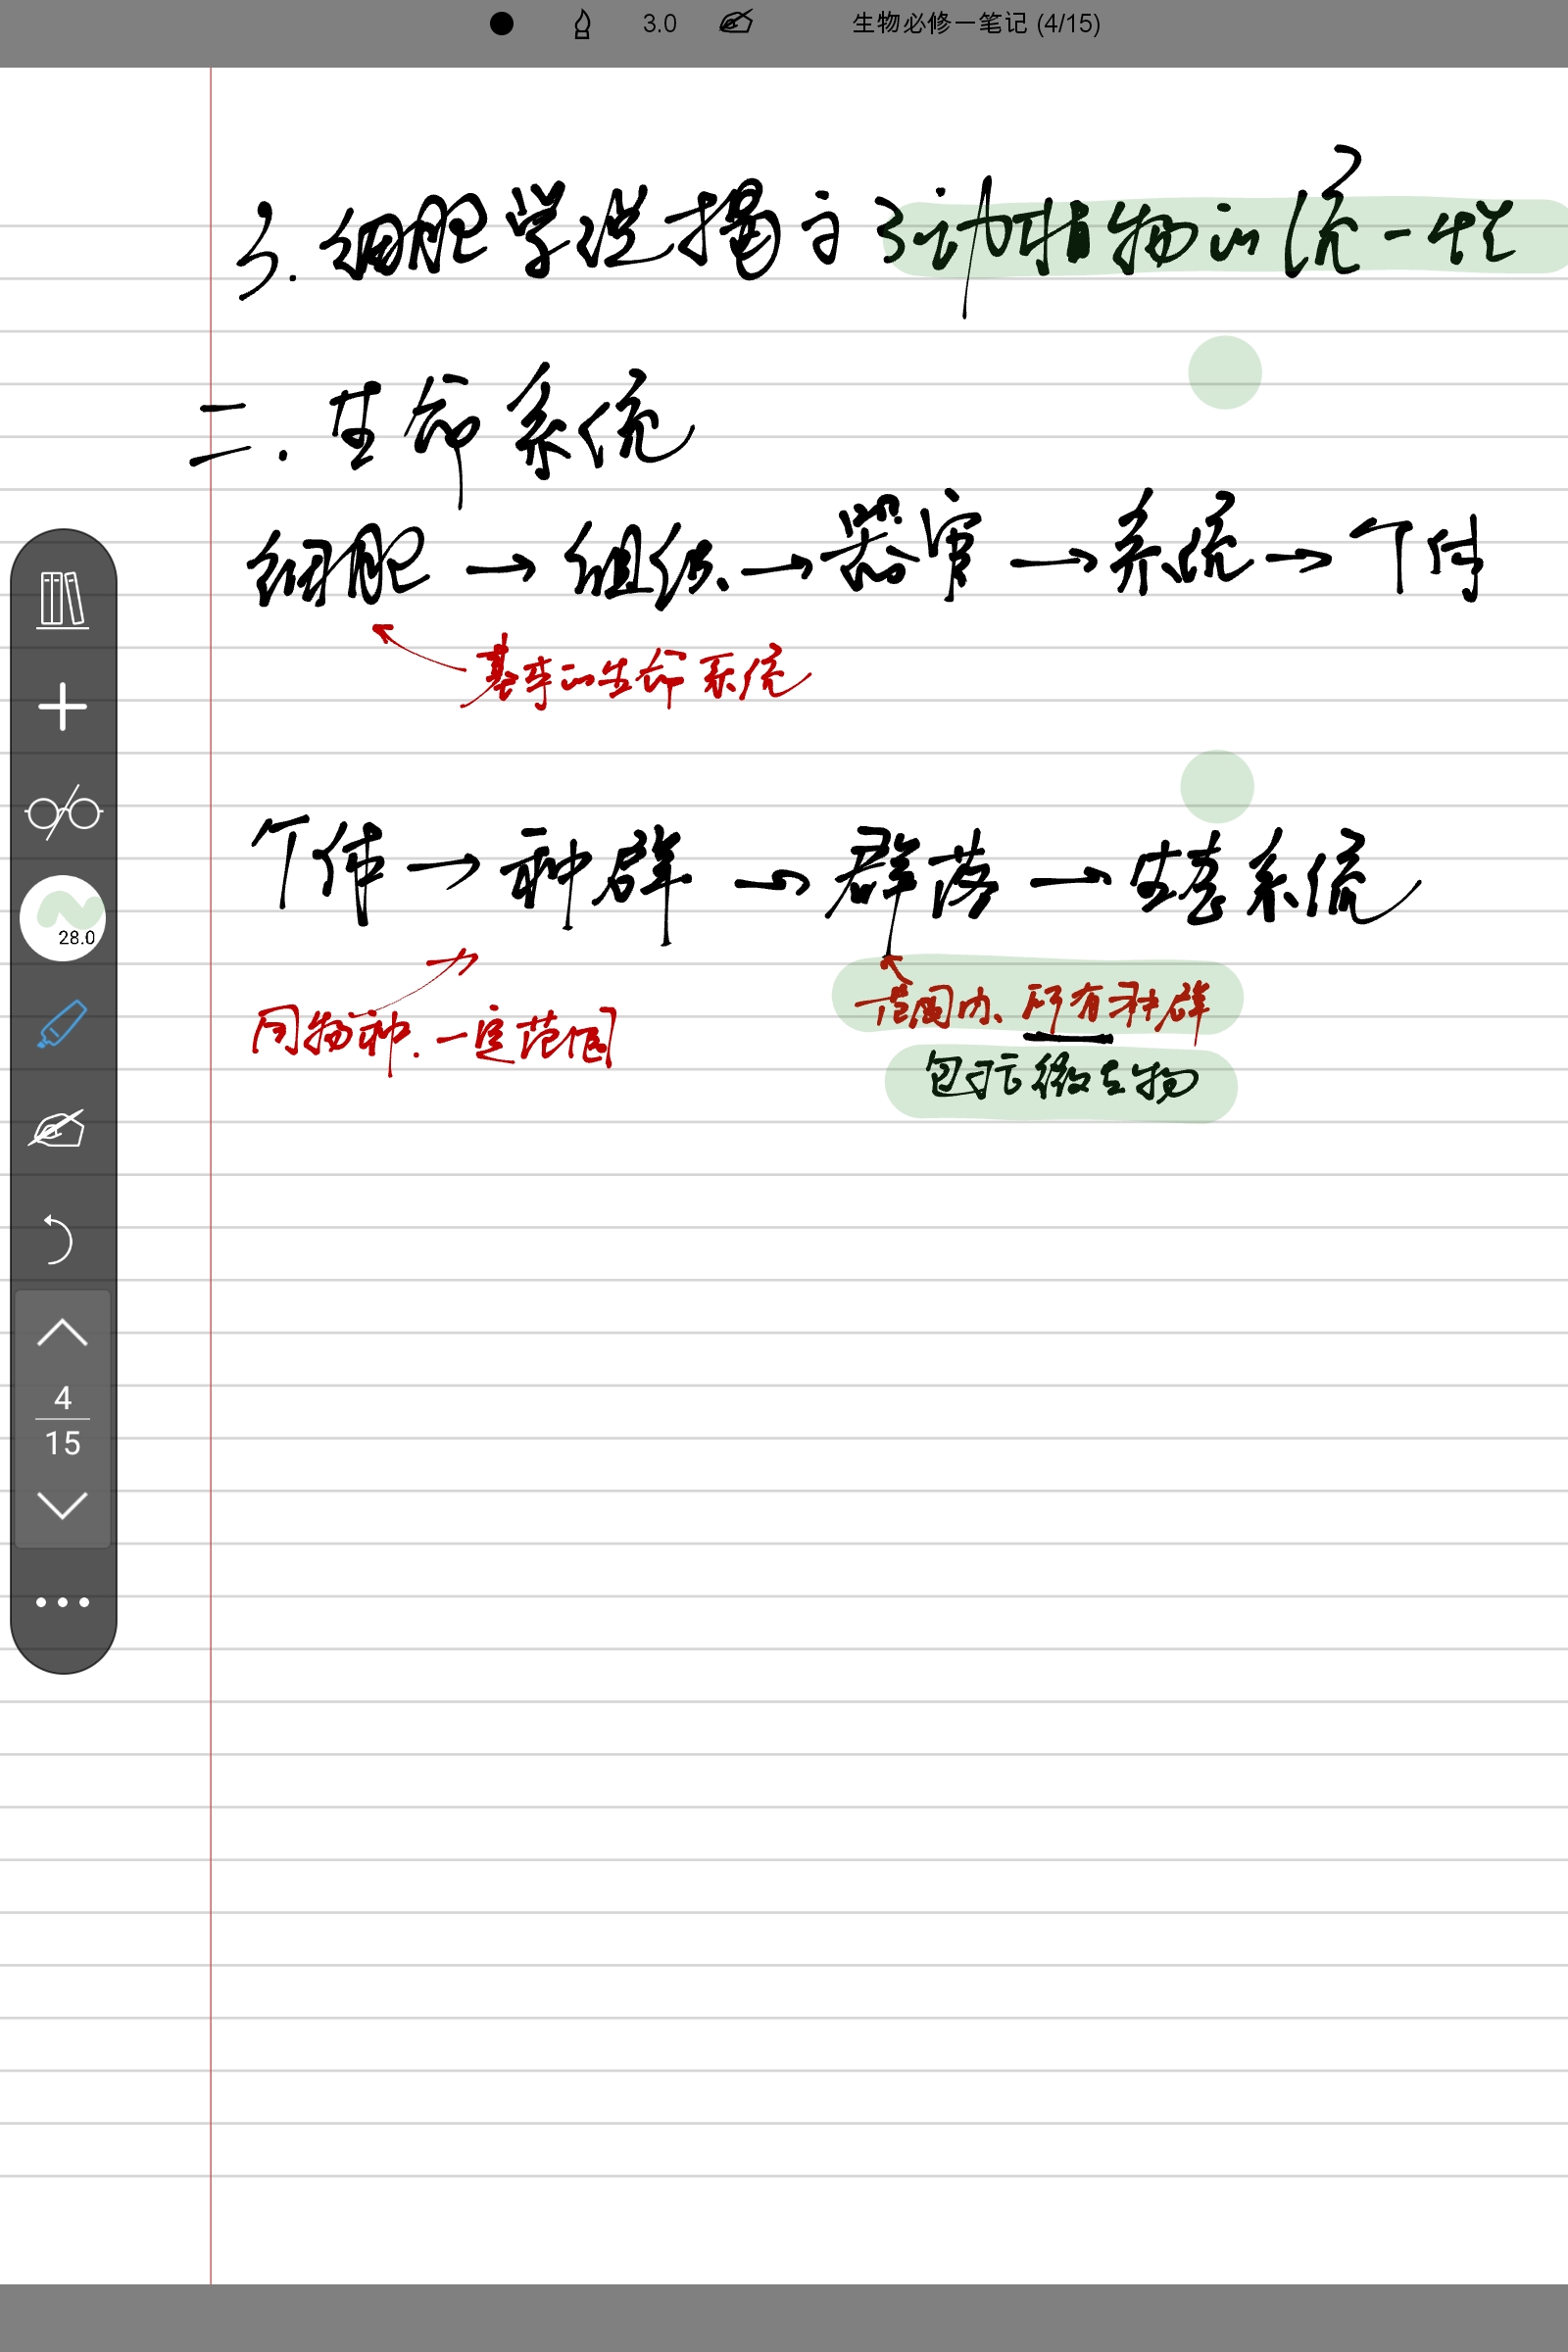 3.0 生物必修一笔记 (4/15)
3.细胞学说揭示了动植物的统一性
二.生命系统
细胞→组织→器官→系统→个体
基本的生命系统
个体→种群→群落→生态系统
28.0
同物种.一定范围
范围内、所有种群
包括微生物
4
15